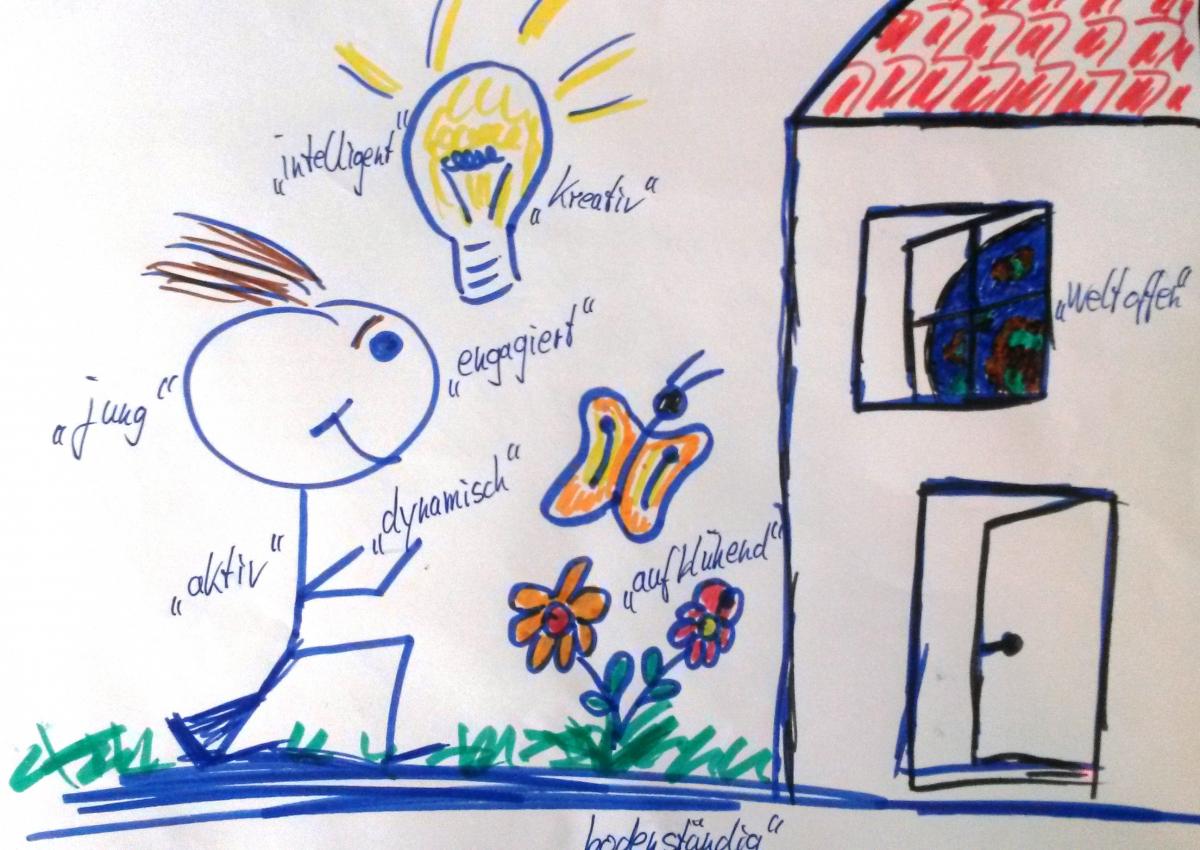 „intelligent“
„kreativ“
„weltoffen“
„engagiert“
„jung“
„dynamisch“
„aufblühend“
„aktiv“
bodenständig“